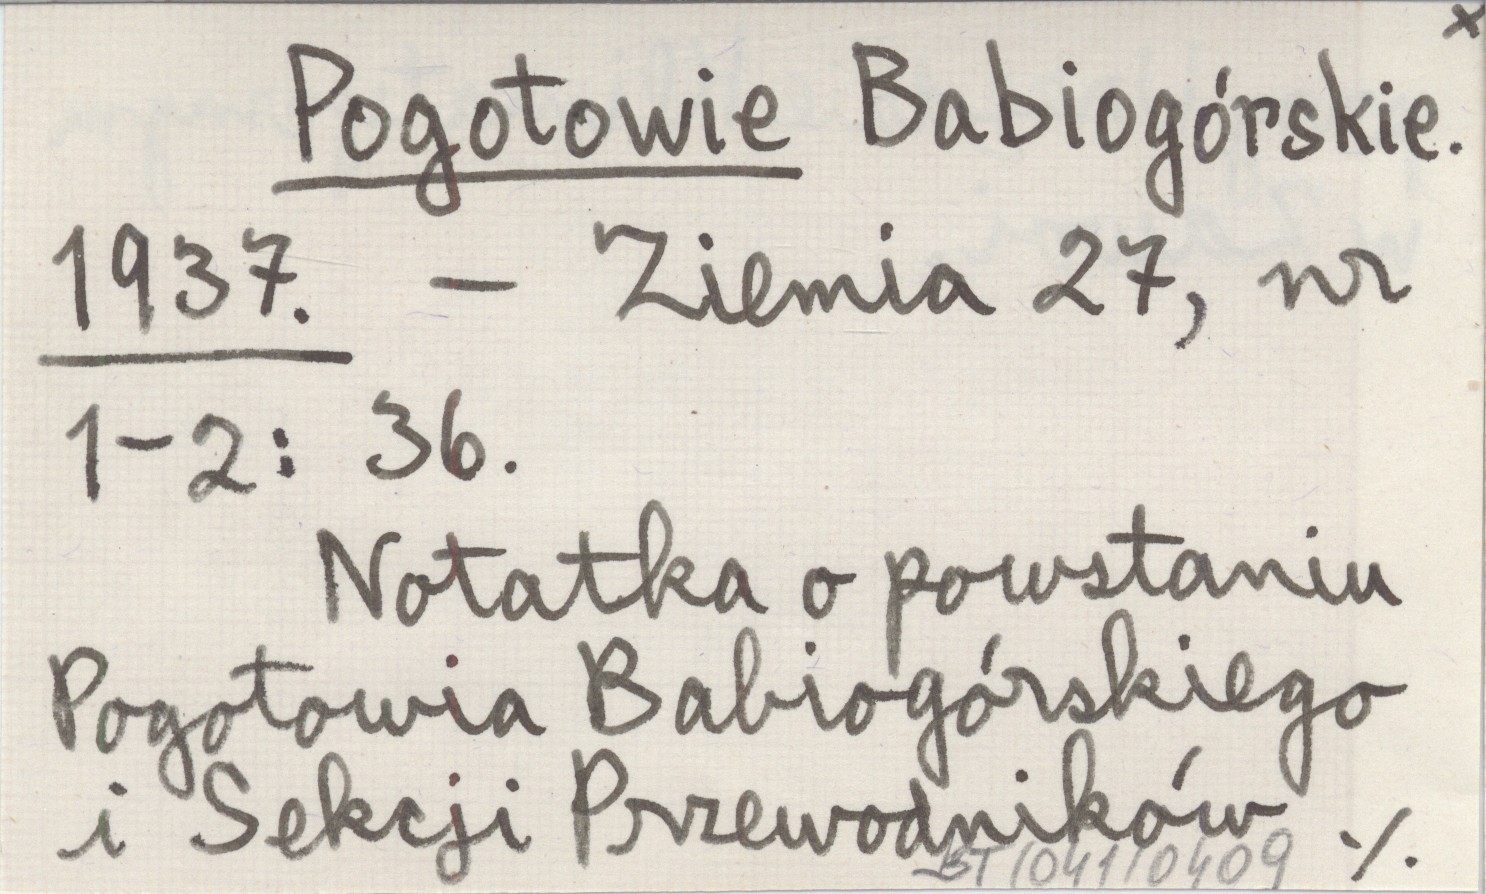 x
Pogotowie Babiogórskie.
1937. – Ziemia 27, nr
1-2: 36.
Notatka o powstaniu
Pogotowia Babiogórskiego
i Sekcji Przewodników ./.
BT/041/0409